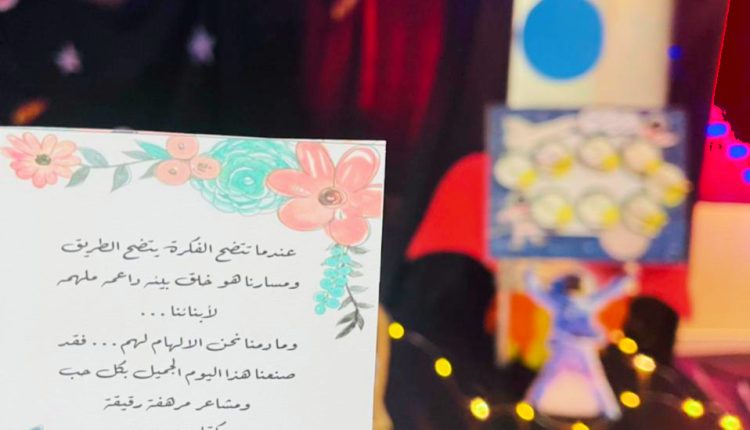 عندما تتضح الفكرة يتضح الطريق
ومسارنا هو خلق بيئه داعمه ملهمه
لأبنائنا ...
وما دمنا نحن الالهام لهم ... فقد
صنعنا هذا اليوم الجميل بكل حب
ومشاعر مرهفة رقيقة